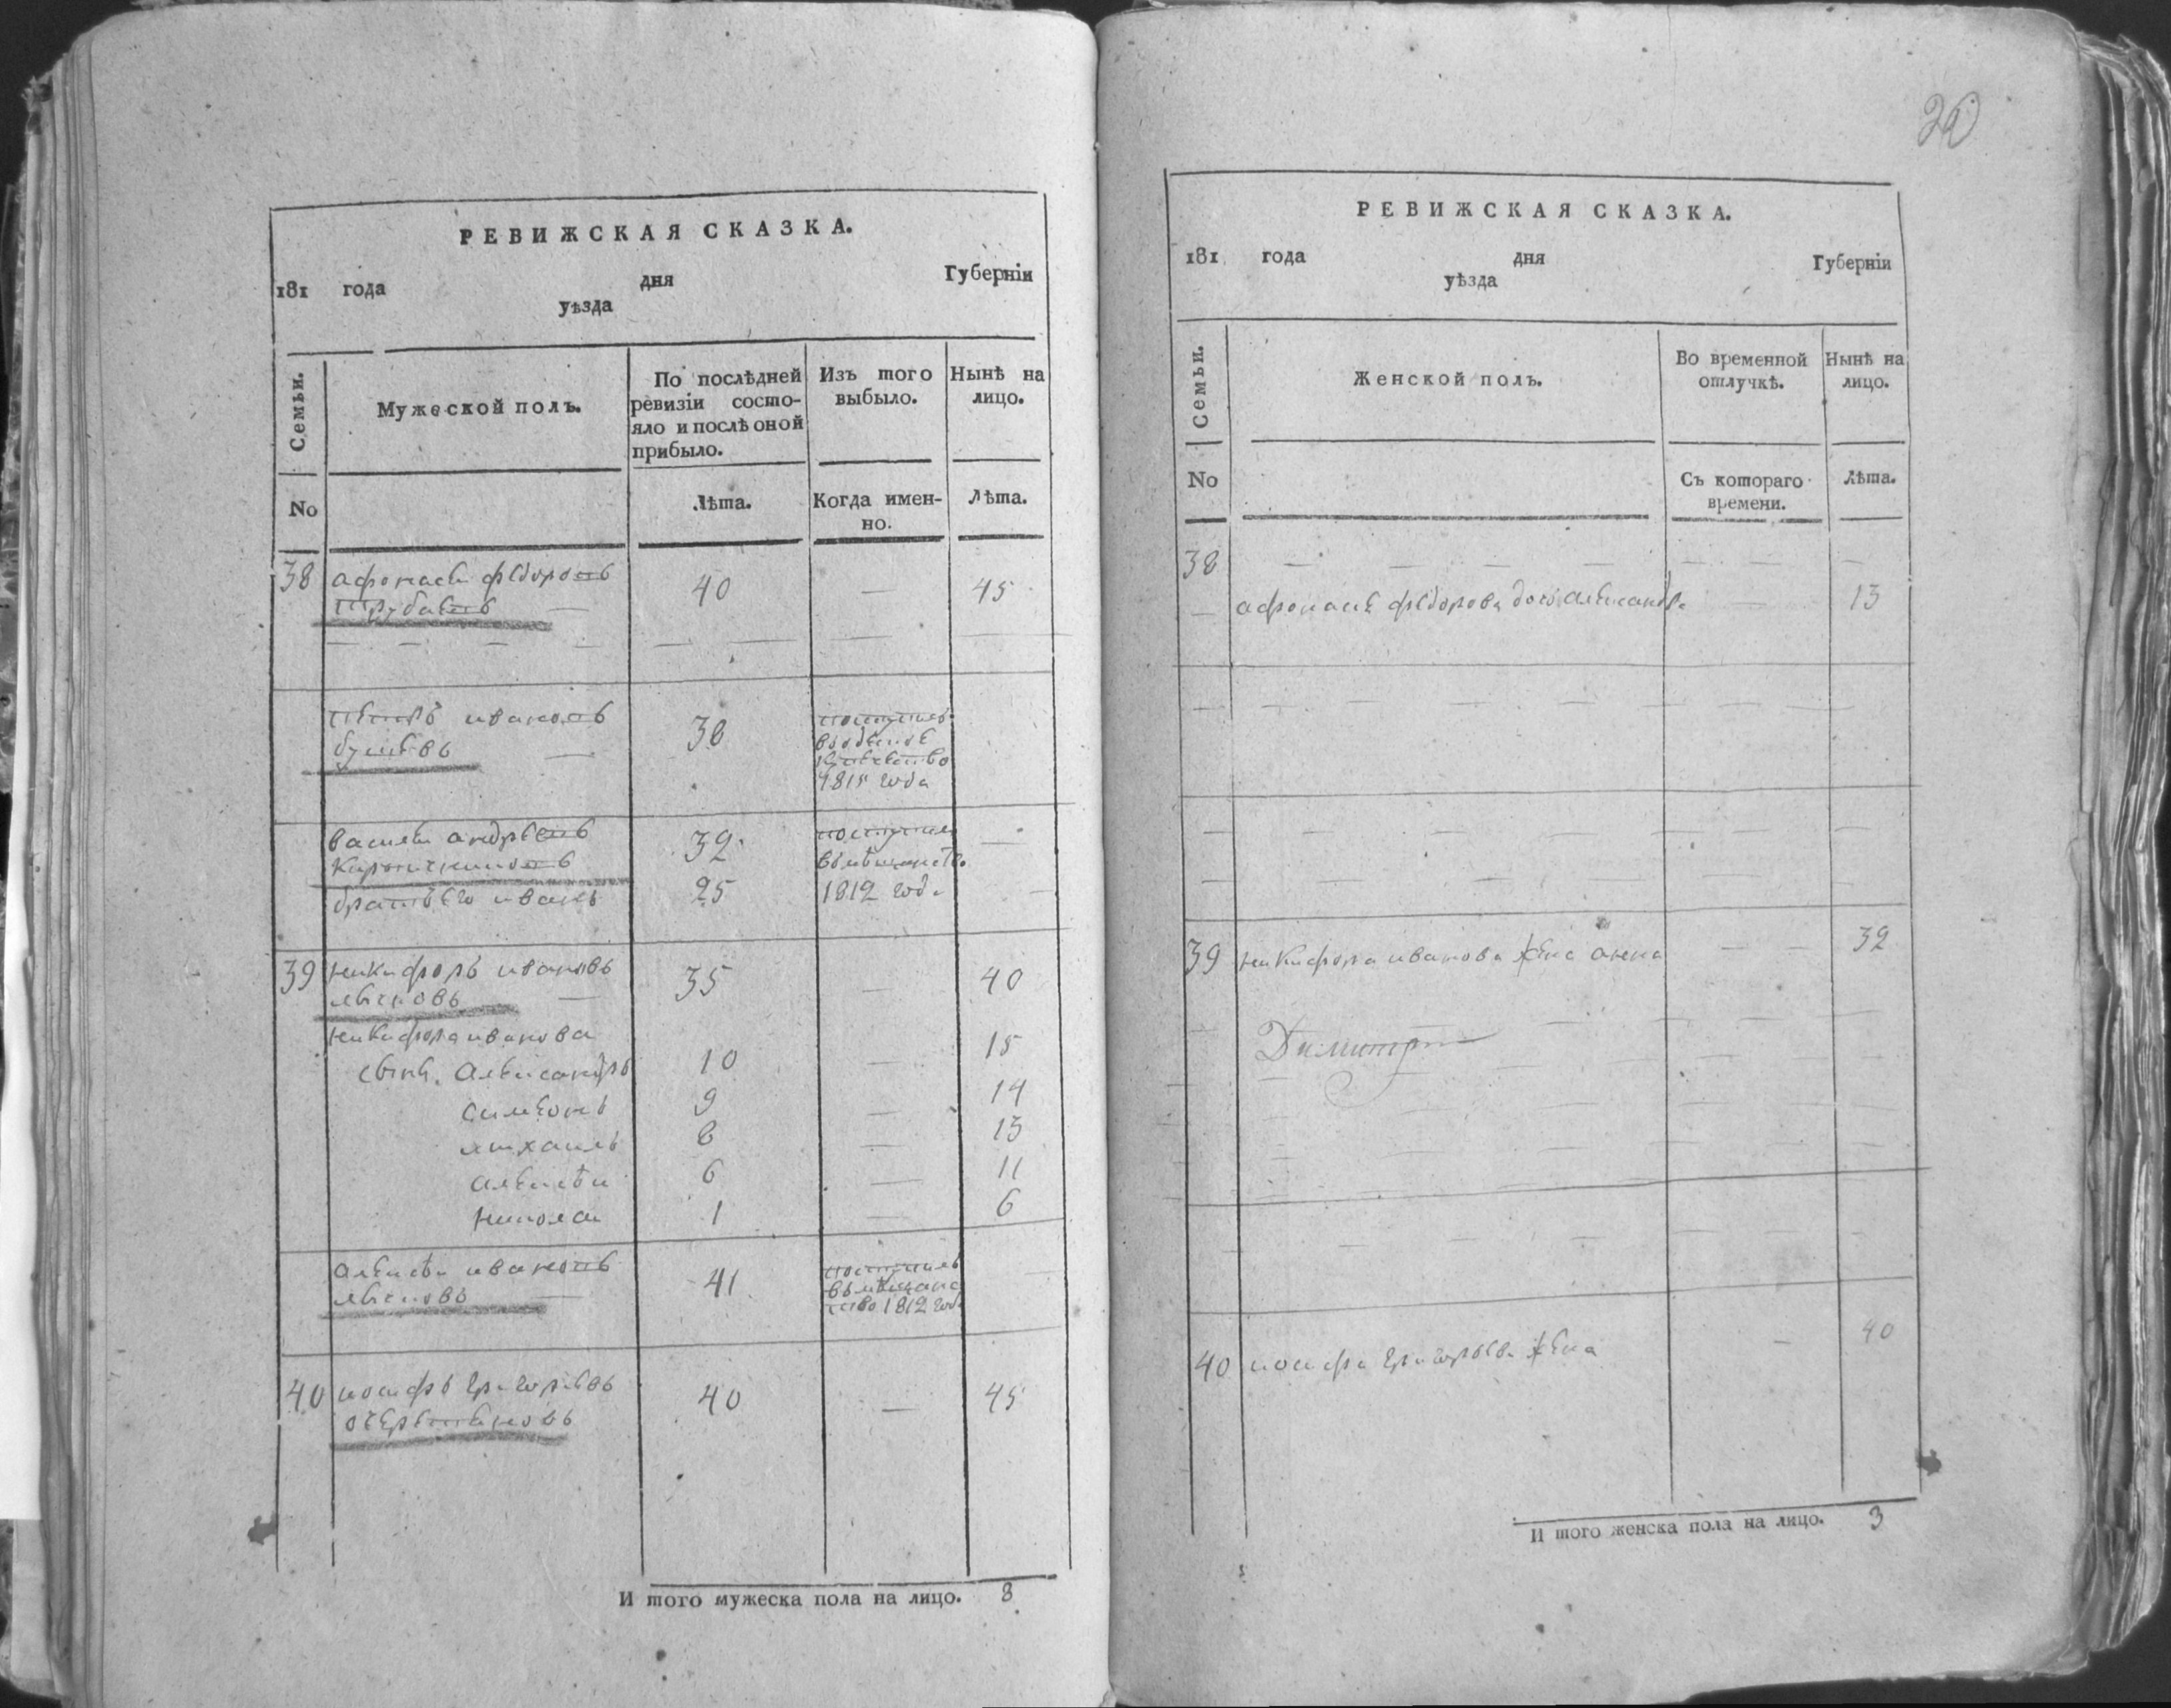 РЕВИЖСКАЯ СКАЗКА.
181 года дня Губерніи
уѣзда
Семьи.
Мужеской полъ.
По послѣдней
ревизіи состо-
яло и послѣ оной
прибыло.
Изъ того
выбыло.
Нынѣ на
лицо.
No
Лѣта.
Когда имен-
но.
Лѣта.
38 афонасеи федоровъ 40 — 45
ивановъ 38
1815 года
василеи андреевъ 32
братъ его иванъ 25 1812 года
39 никифоръ ивановъ 35 — 40
никифора иванова
сынъ. александръ 10 — 15
симеонъ 9 — 14
михаилъ 8 — 13
алексѣи 6 — 11
николаи 1 — 6
алексѣи ивановъ 41 поступилъ
въ мещанс
тво 1812 года
40 иосифъ григорьевъ 40 — 45
И того мужеска пола на лицо. 8
20
РЕВИЖСКАЯ СКАЗКА.
181 года дня Губерніи
уѣзда
Семьи.
Женской полъ.
Во временной
отлучкѣ.
Нынѣ на
лицо.
No
Съ котораго
времени.
Лѣта.
38
афонасея федорова дочь александра 13
39 никифора иванова жена анна 32
Димитри
40 иосифа григорьева жена — 40
И того женска пола на лицо. 3